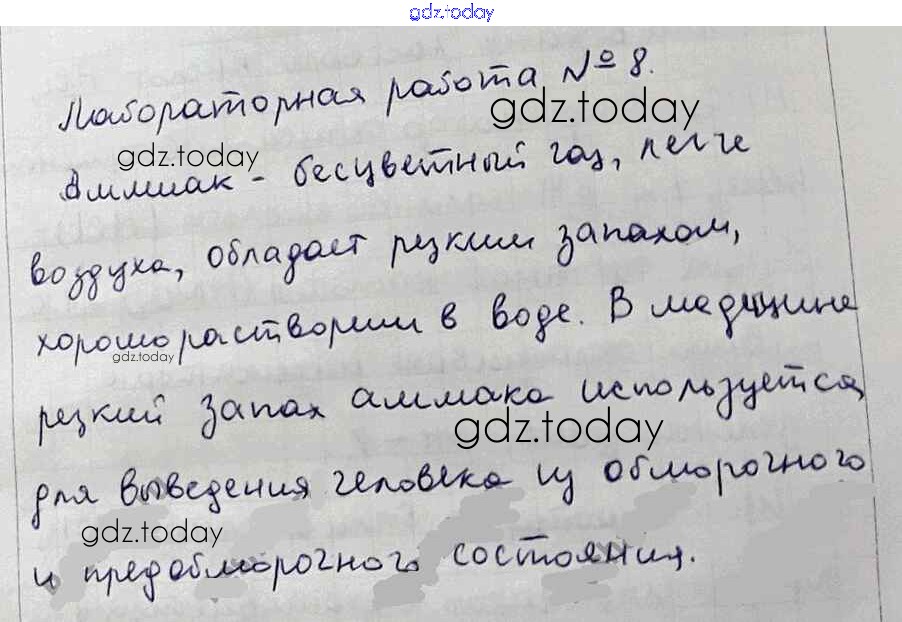 gdz.today
Лабораторная работа № 8.
gdz.today
gdz.today
Аммиак - бесцветный газ, легче
воздуха, обладает резким запахом,
хорошо растворим в воде. В медицине
gdz.today
резкий запах аммака используется
gdz.today
для выведения человека из обморочного
gdz.today
и предобморочного состояния.